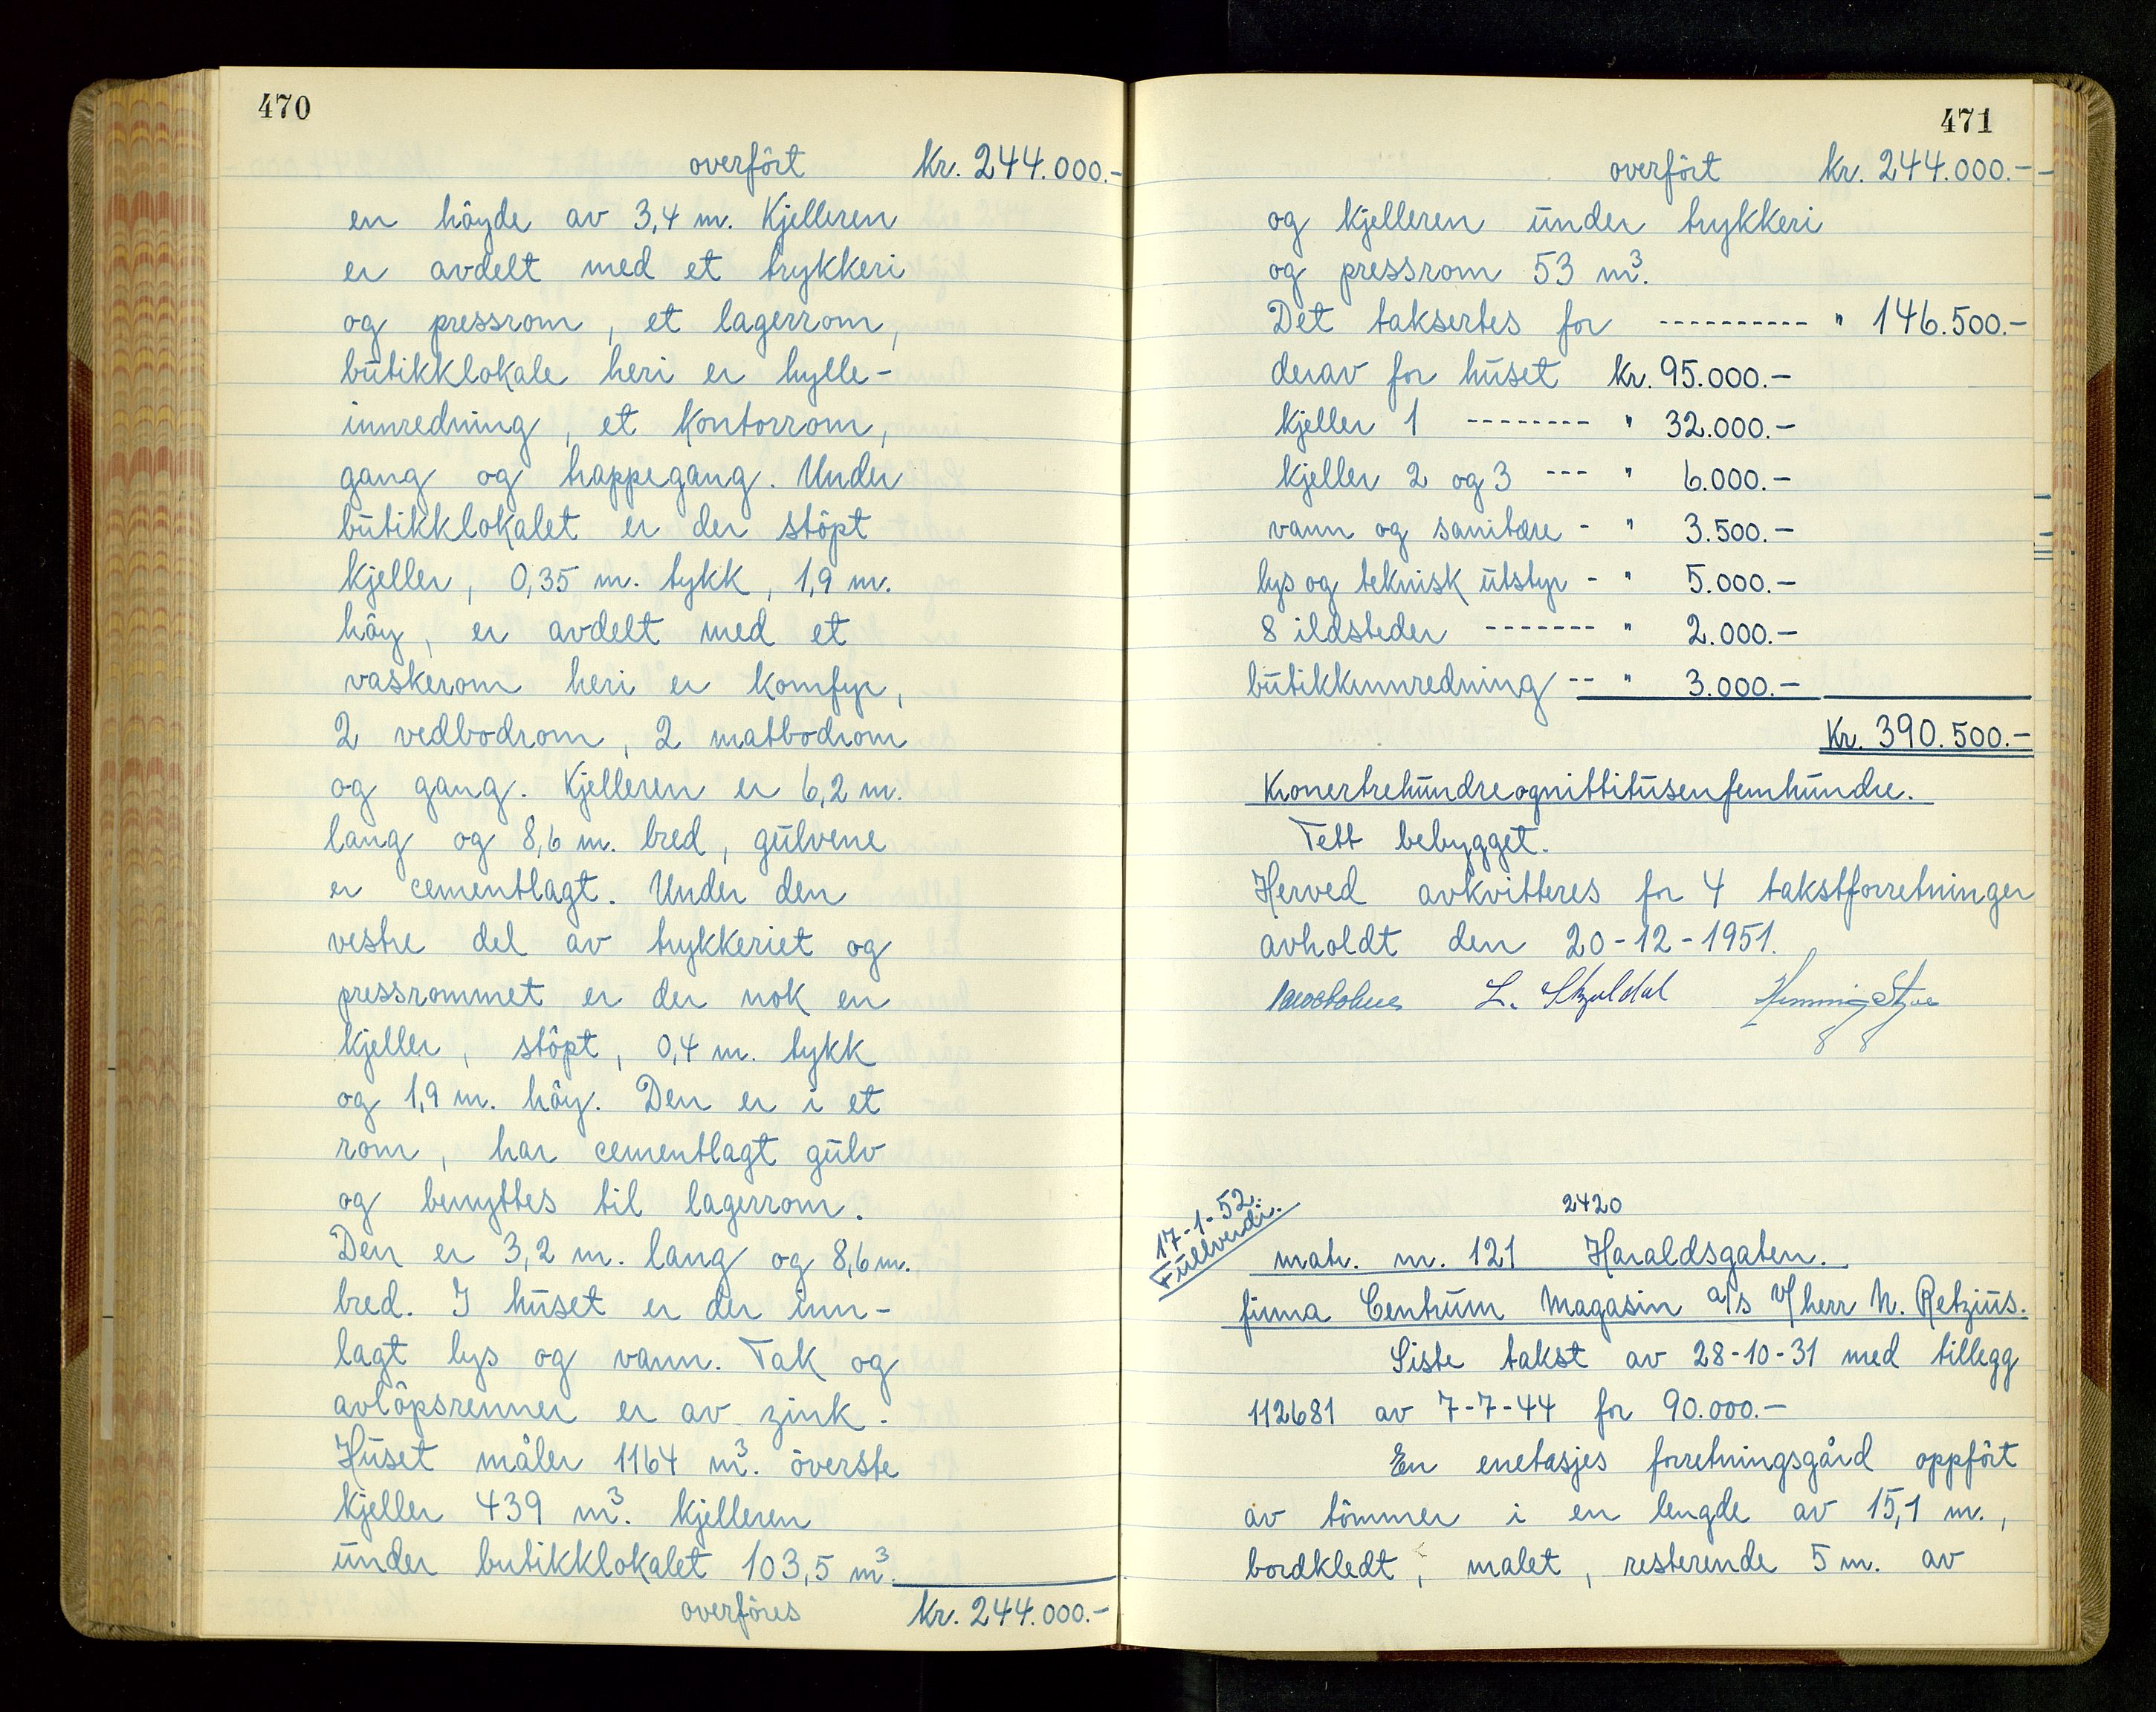 470
overført kr. 244.000.-
en høyde av 3,4 m. Kjelleren
er avdelt med et trykkeri
og pressrom, et lagerrom,
butikklokale heri er hylle-
innredning, et kontorrom,
gang og trappegang. Under
butikklokalet er der støpt
kjeller, 0,35 m. tykk, 1,9 m.
høy, er avdelt med et
vaskerom heri er komfyr,
2 vedbodrom, 2 matbodrom
og gang. Kjelleren er 6,2 m.
lang og 8,6 m. bred, gulvene
er cementlagt. Under den
vestre del av trykkeriet og
pressrommet er der nok en
kjeller, støpt, 0,4 m. tykk
og 1,9 m. høy. Den er i et
rom, har cementlagt gulv
og benyttes til lagerrom.
Den er 3,2 m. lang og 8,6 m.
bred. I huset er der inn-
lagt lys og vann. Tak og
avløpsrenner er av zink.
Huset måler 1164 m³. øverste
kjeller 439 m³. kjelleren
under butikklokalet 103,5 m³.
overføres kr. 244.000.-
471
overført kr. 244.000.-
og kjelleren under trykkeri
og pressrom 53 m³.
Det taksertes for ---------- " 146.500.-
derav for huset kr. 95.000.-
kjeller 1 -------- " 32.000.-
kjeller 2 og 3 --- " 6.000.-
vann og sanitære - " 3.500.-
lys og teknisk utstyr - " 5.000.-
8 ildsteder ------- " 2.000.-
butikkinnredning -- " 3.000.-
Kr. 390.500.-
Kronertrehundreognittitusenfemhundre.
Tett bebygget.
Herved avkvitteres for 4 takstforretninger
avholdt den 20-12-1951.
L. Skjoldal Henning Styve
17-1-52.
Fullverdi.
2420
matr. nr. 121 Haraldsgaten.
firma Centrum Magasin a/s v/herr N. Retzius.
Siste takst av 28-10-31 med tillegg
112681 av 7-7-44 for 90.000.-
En enetasjes forretningsgård oppført
av tømmer i en lengde av 15,1 m.,
bordkledt, malet, resterende 5 m. av